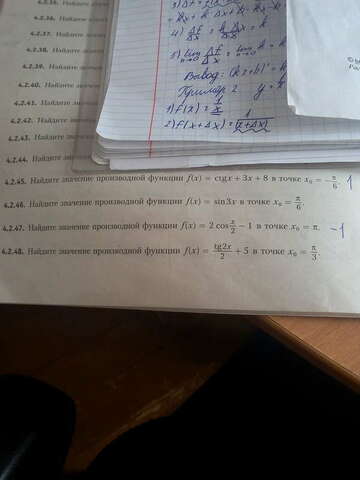 4.2.36. Найдите
4.2.37. Найдите
4.2.38. Найдите
4.2.39. Найдите
4.2.40. Найдите
4.2.41. Найдите
4.2.42. Найдите
4.2.43. Найдите
4.2.44. Найдите
4) Δf/Δx = kΔx/Δx = k
5) lim Δf/Δx = lim k = k
Вывод: (kx+b)' = k
Пример 2 y =
1) f(x) = 1/x
2) f(x+Δx) = 1/(x+Δx)
4.2.45. Найдите значение производной функции f(x) = ctgx + 3x + 8 в точке x₀ = −π/6. 1
4.2.46. Найдите значение производной функции f(x) = sin3x в точке x₀ = π/6.
4.2.47. Найдите значение производной функции f(x) = 2 cos x/2 − 1 в точке x₀ = π. −1
4.2.48. Найдите значение производной функции f(x) = tg2x/2 + 5 в точке x₀ = π/3.